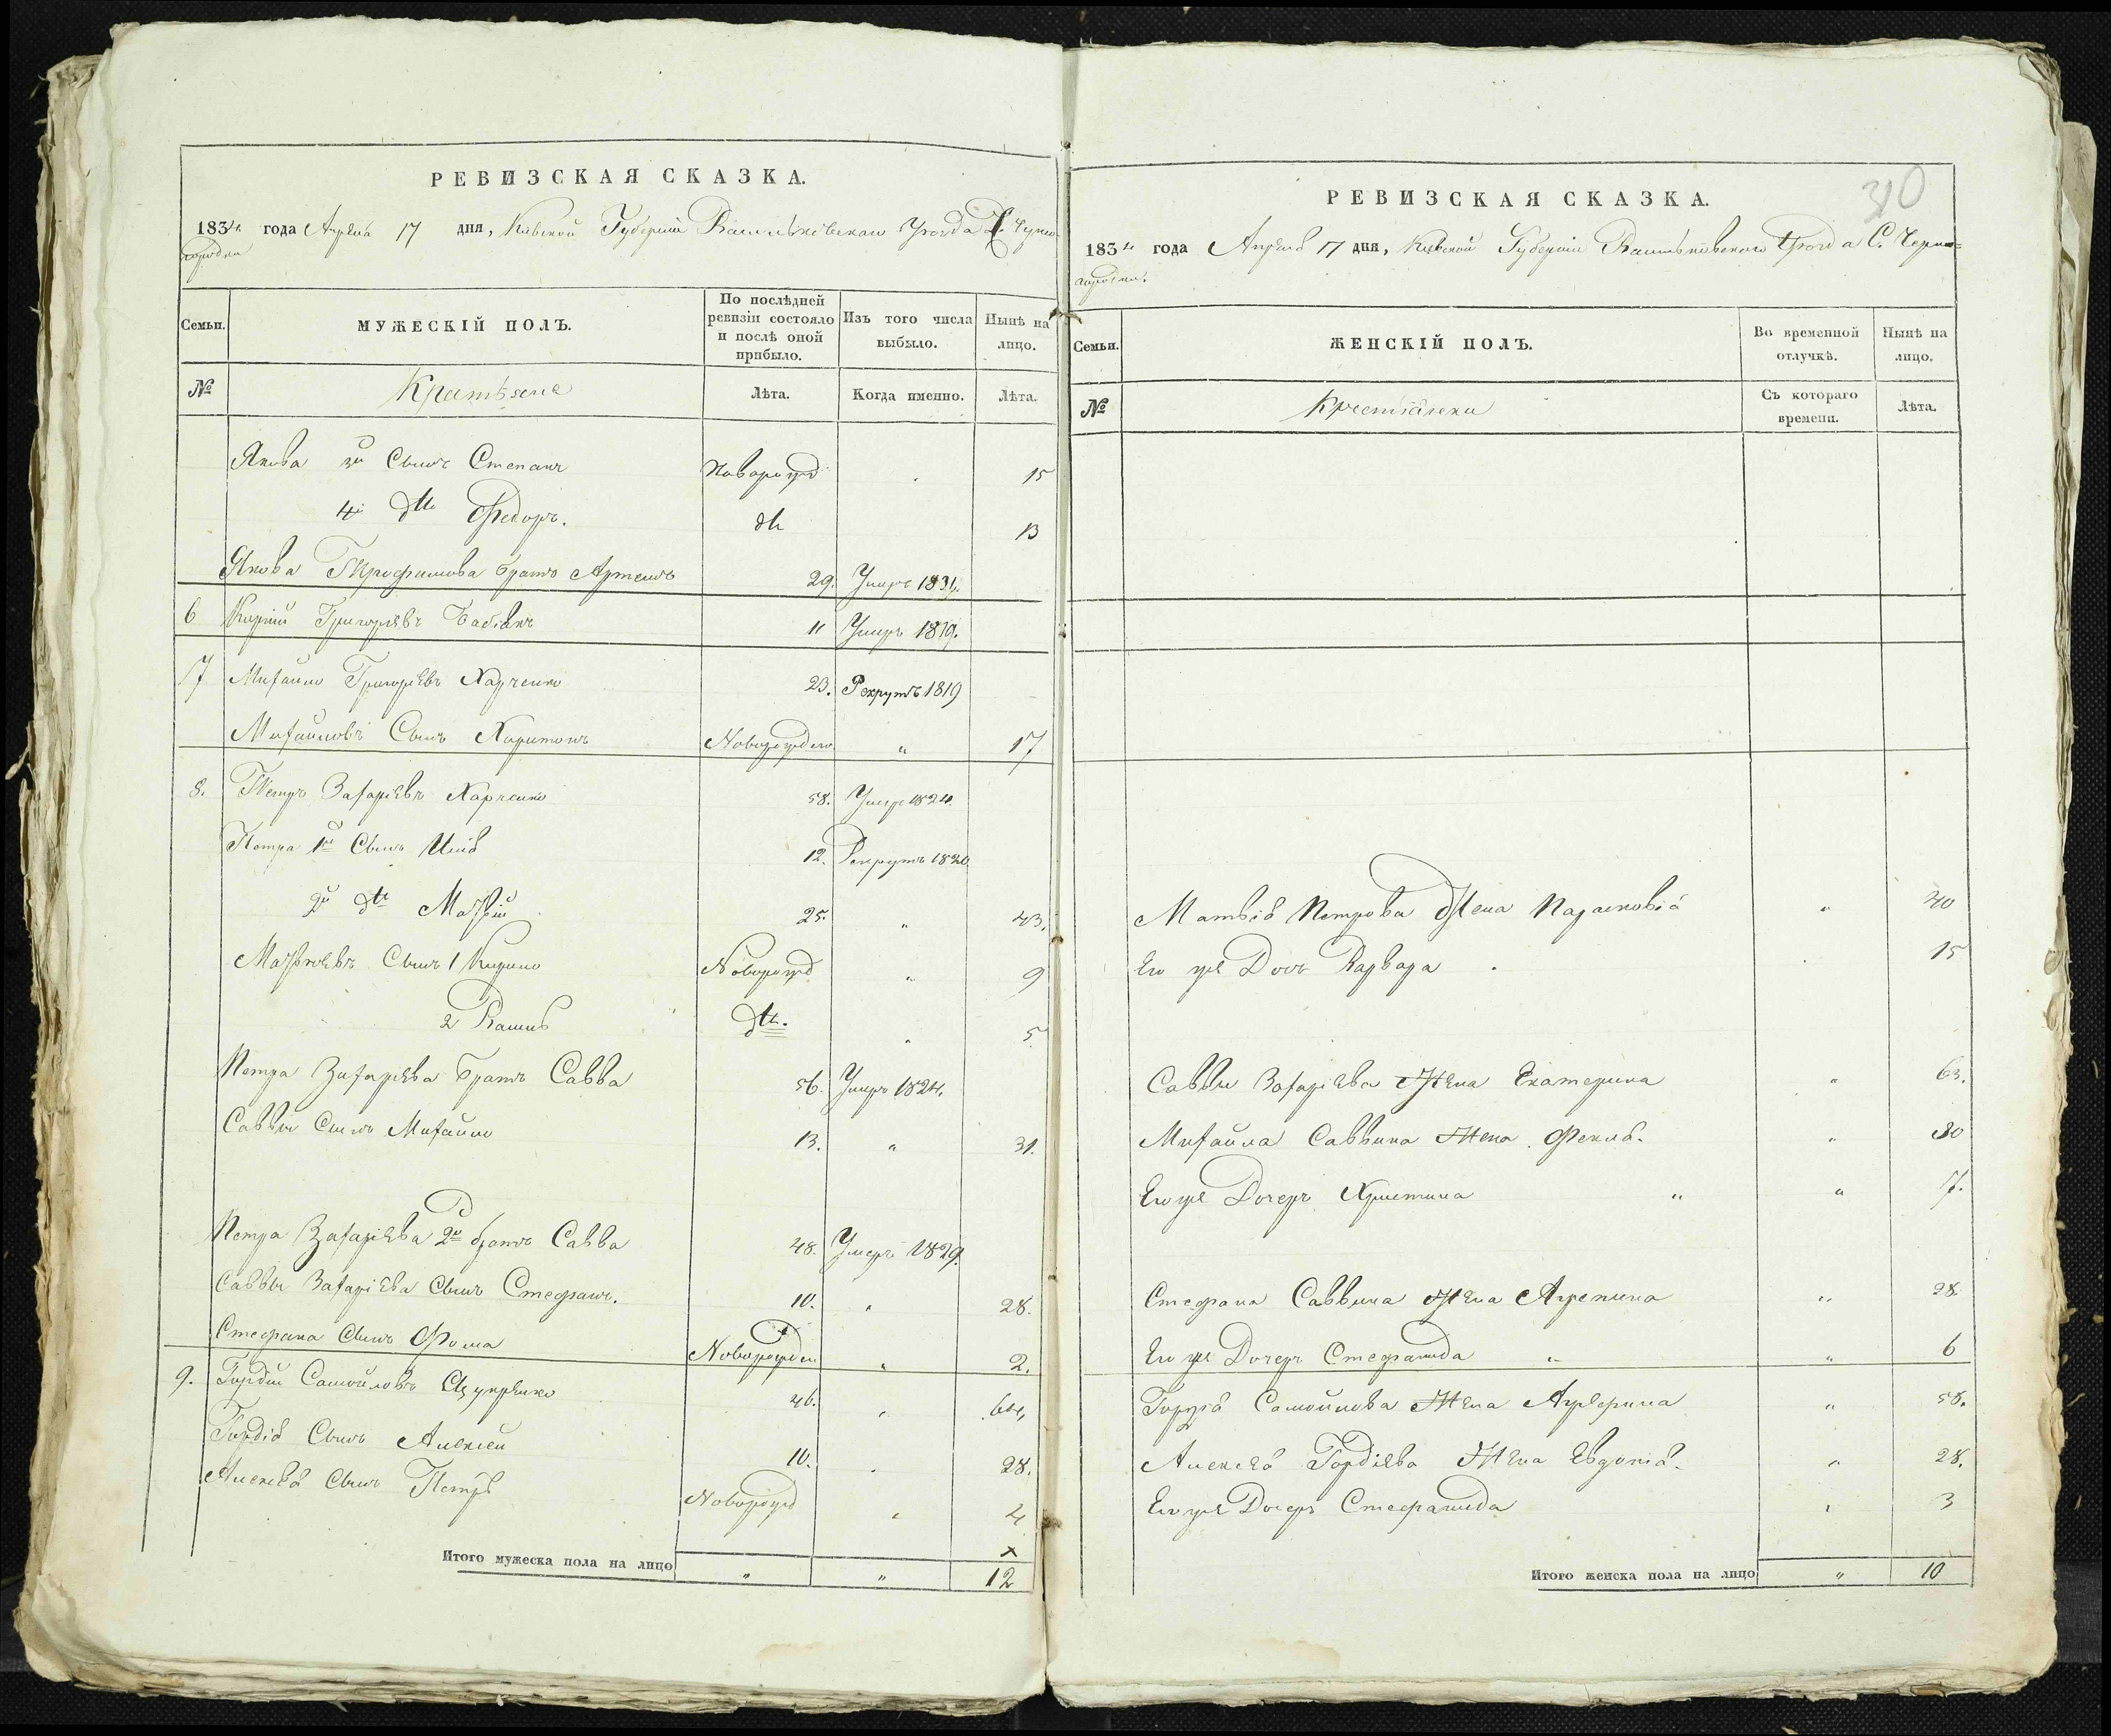 РЕВИЗСКАЯ СКАЗКА.
1834 года Апреля 17 дня, Кіевской Губерніи Васильковскаго Уезда С. Черно-
городки
Семьи.
МУЖЕСКІЙ ПОЛЪ.
По послѣдней ревизіи состояло и послѣ оной прибыло.
Изъ того числа выбыло.
Нынѣ на лицо.
№
Крестьяне
Лѣта.
Когда именно.
Лѣта.
Якова 3й Сынъ Степанъ Новорожд 15
4й dtto Федоръ. dto 13
Якова Трофимова братъ Артемъ 29. Умеръ 1831.
6 Григорьевъ 11 Умеръ 1819.
17 Михайло Григорьевъ Харченко 23. Рекрутъ 1819
Михайловъ Сынъ Харитонъ Новорожден " 17
8. Петръ Захаріевъ Харченко 58. Умеръ 1824.
Петра 1й Сынъ 12. Рекрутъ 1820
2й dtto Матвій 25. " 43.
Матвѣевъ Сынъ 1 Кирило Новорожд " 9
2 dtto. " 5
Петра Захаріева братъ Савва 56. Умеръ 1824.
Саввы Сынъ Михайло 13. " 31.
Петра Захаріева 2й братъ Савва 48. Умеръ 1829.
Саввы Захаріева сынъ Стефанъ. 10. " 28.
Стефана сынъ Фома Новорожден " 2.
9. Гордій Самойловъ 46. " 64,
Гордія Сынъ Алексей 10. " 28.
Алексея сынъ Петръ Новорожд " 4
x
Итого мужеска пола на лицо " " 12
310
РЕВИЗСКАЯ СКАЗКА.
1834 года Апреля 17 дня, Кіевской Губерніи Васильковскаго Уезда С. Черно=
городки.
Семьи.
ЖЕНСКІЙ ПОЛЪ.
Во временной отлучкѣ.
Нынѣ на лицо.
№
Крестьянки
Съ котораго времени.
Лѣта.
Матвія Петрова Жена Парасковія " 40
Его же Дочь Варвара . 15
Саввы Захаріева Жена Екатерина " 63.
Михайла Саввина Жена Фекла. " 30
Его же Дочерь Христина " " 7.
Стефана Саввина Жена Агрепина " 28.
Его же Дочерь Стефанида " " 6
Гордія Самойлова Жена Агрефина " 58.
Алексея Гордіева Жена Евдокія. " 28.
Его же Дочерь Стефанида " 3
Итого женска пола на лицо " 10